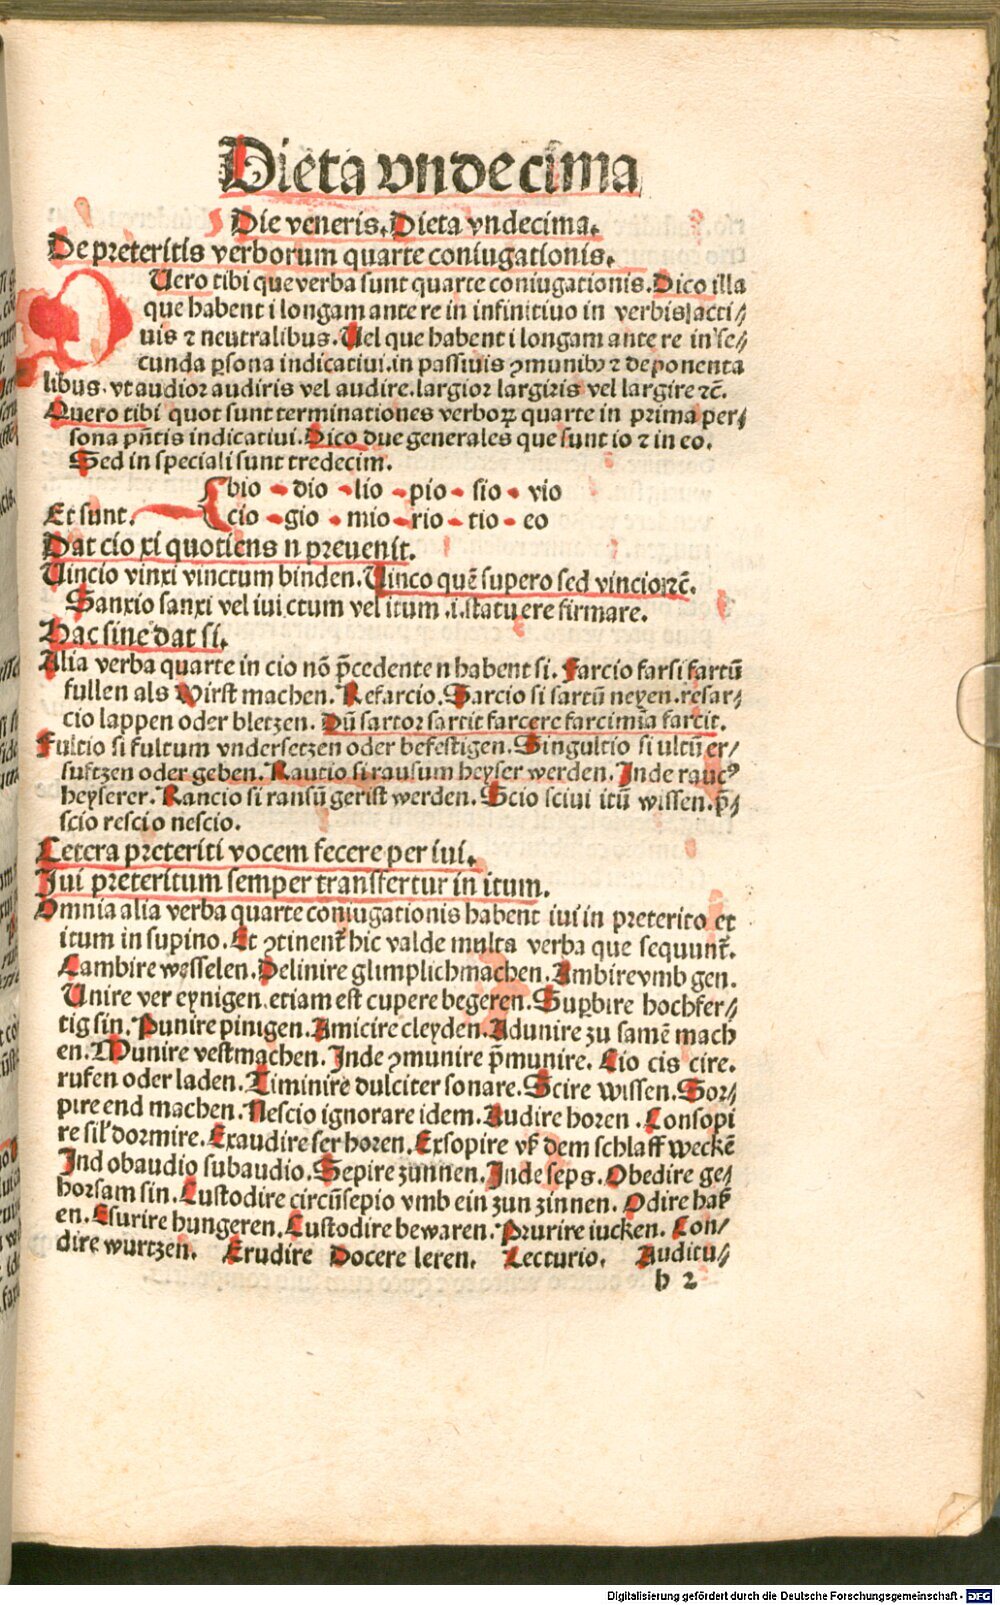 Dieta vndecima
Die veneris. Dieta vndecima.
De preteritis verborum quarte coniugationis.
QUero tibi que verba sunt quarte coniugationis. Dico illa
que habent i longam ante re in infinitiuo in verbis acti⸗
uis ⁊ neutralibus. Uel que habent i longam ante re in se⸗
cunda ꝑsona indicatiui. in passiuis ꝯmunibꝰ ⁊ deponenta
libus. vt audior audiris vel audire. largior largiris vel largire ⁊c̃.
Quero tibi quot sunt terminationes verboꝝ quarte in prima per⸗
sona pñtis indicatiui. Dico due generales que sunt io ⁊ in eo.
Sed in speciali sunt tredecim.
bio dio lio pio sio vio
Et sunt. cio gio mio rio tio eo
Dat cio xi quotiens n preuenit.
Uincio vinxi vinctum binden. Uinco quē supero sed vincio ⁊c̃.
Sanxio sanxi vel iui ctum vel itum .i. statuere firmare.
Hac sine dat si.
Alia verba quarte in cio nō p̄cedente n habent si. Farcio farsi fartū
fullen als Wirst machen. Refarcio. Sarcio si sartū neyen. resar⸗
cio lappen oder bletzen. Dū sartor sarcit farcere farcimīa farcit.
Fultio si fultum vndersetzen oder befestigen. Singultio si ultū er⸗
suftzen oder geben. Raucio si rausum heyser werden. Inde raucꝰ
heyserer. Rancio si ransū gerist werden. Scio sciui itū wissen. p̄⸗
scio rescio nescio.
Cetera preteriti vocem fecere per iui.
Iui preteritum semper transfertur in itum.
Omnia alia verba quarte coniugationis habent iui in preterito et
itum in supino. Et ꝯtinent̄ hic valde multa verba que sequunt̄.
Lambire wesselen. Delinire glimplich machen. Ambire vmb gen.
Unire ver eynigen. etiam est cupere begeren. Suꝑbire hochfer⸗
tig sin. Punire pinigen. Amicire cleyden. Adunire zu samē mach
en. Munire vestmachen. Inde ꝯmunire p̄munire. Cio cis cire.
rufen oder laden. Timinire dulciter sonare. Scire wissen. Sor⸗
pire end machen. Nescio ignorare idem. Audire horen. Consopi
re sil' dormire. Exaudire ser horen. Exsopire vß dem schlaff weckē
Ind obaudio subaudio. Sepire zunnen. Inde seps. Obedire ge⸗
horsam sin. Custodire circūsepio vmb ein zun zinnen. Odire haß
en. Esurire hungeren. Custodire bewaren. Prurire iucken. Con⸗
dire wurtzen. Erudire Docere leren. Lecturio. Auditu⸗
h 2
Digitalisierung gefördert durch die Deutsche Forschungsgemeinschaft - DFG